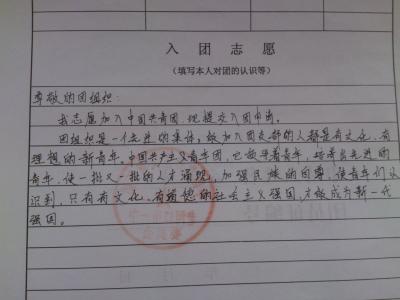 入团志愿
（填写本人对团的认识等）
尊敬的团组织：
我志愿加入中国共青团，现提交入团申出。
团组织是一个先进的集体，能加入团支部的人都是有文化、有
理想的新青年。中国共产主义青年团，它教导着青年，培养出先进的
青年、使一批又一批的人才涌现，加强民族的自尊，使青年们认
识到，只有有文化、有道德的社会主义强国，才能成为新一代
强国。